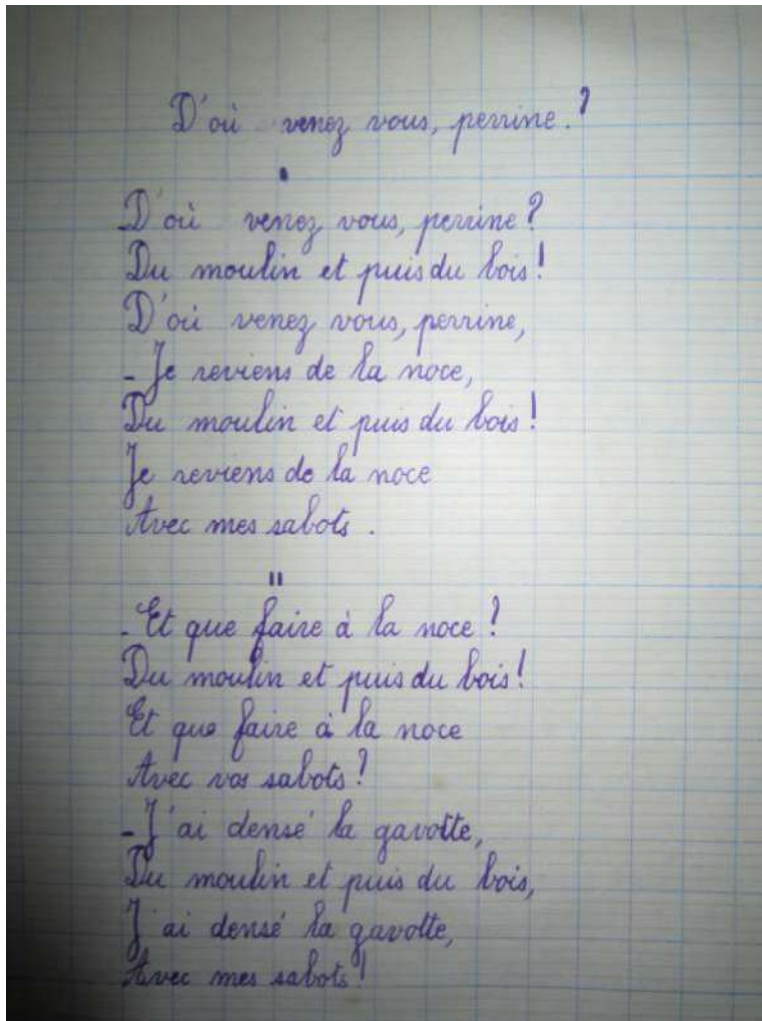 D'où venez vous, perrine.?
I
- D'où venez vous, perrine?
Du moulin et puis du bois!
D'où venez vous, perrine,
- Je reviens de la noce,
Du moulin et puis du bois!
Je reviens de la noce
Avec mes sabots.
II
- Et que faire à la noce?
Du moulin et puis du bois!
Et que faire à la noce
Avec vos sabots?
- J'ai densé la gavotte,
Du moulin et puis du bois,
J'ai densé la gavotte,
Avec mes sabots!